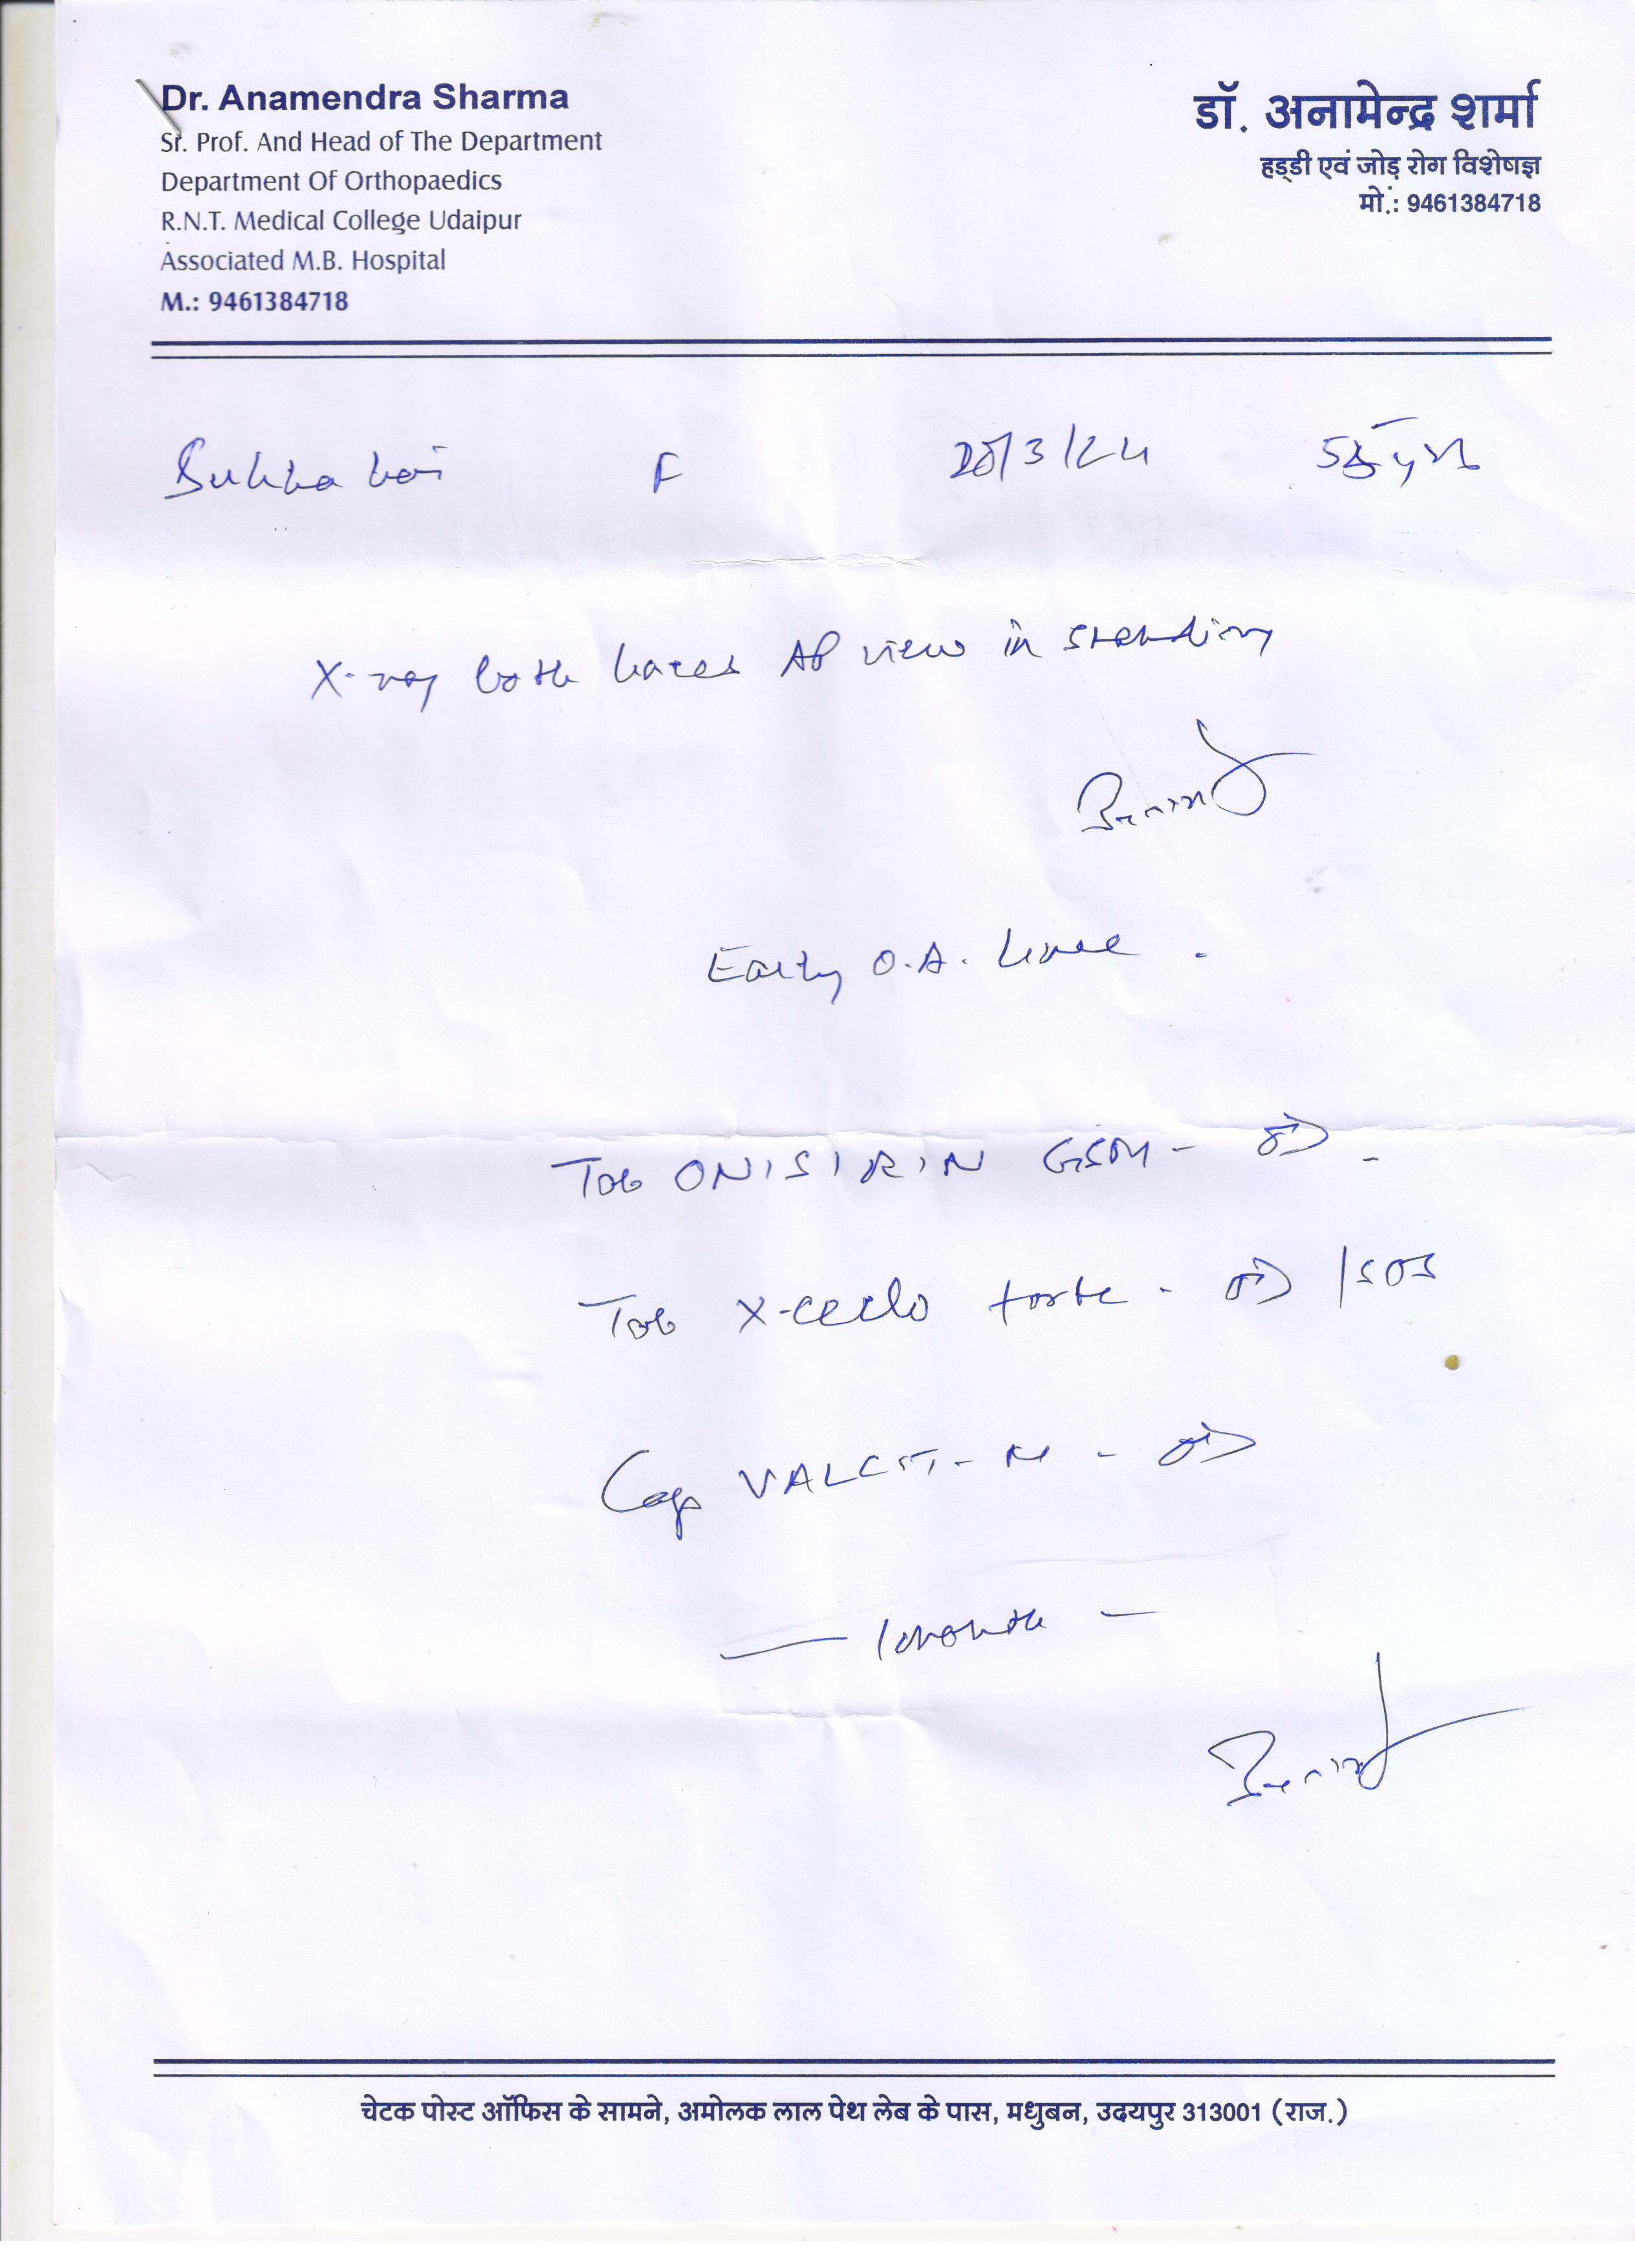 Dr. Anamendra Sharma
Sr. Prof. And Head of The Department
Department Of Orthopaedics
R.N.T. Medical College Udaipur
Associated M.B. Hospital
M.: 9461384718
डॉ. अनामेन्द्र शर्मा
हड्डी एवं जोड़ रोग विशेषज्ञ
मो.: 9461384718
Sukha bai F /3/24
X-ray both knees AP view in standing
Early O.A. knee.
Tab ONISIRIN GSM - OD -
Tab X-ceclo forte - OD /SOS
Cap - M - OD
— 1 month —
चेटक पोस्ट ऑफिस के सामने, अमोलक लाल पेथ लेब के पास, मधुबन, उदयपुर 313001 (राज.)